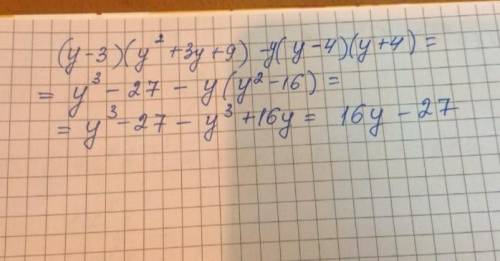 (y-3)(y²+3y+9)-y(y-4)(y+4)=
= y³-27-y(y²-16)=
= y³-27-y³+16y= 16y-27